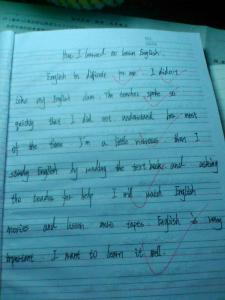 How I learned to learn English
English is difficult to me. I didn't
like my English class. The teacher spoke so
quickly that I did not understand her most
of the time. I'm a little nervous. then I
study English by reading the text books and asking
the teacher for help. I will watch English
movies and listen more tapes. English is very
important. I want to learn it well.